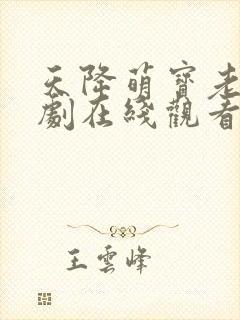 天降萌寶老
劇在綫觀看
王雲峰